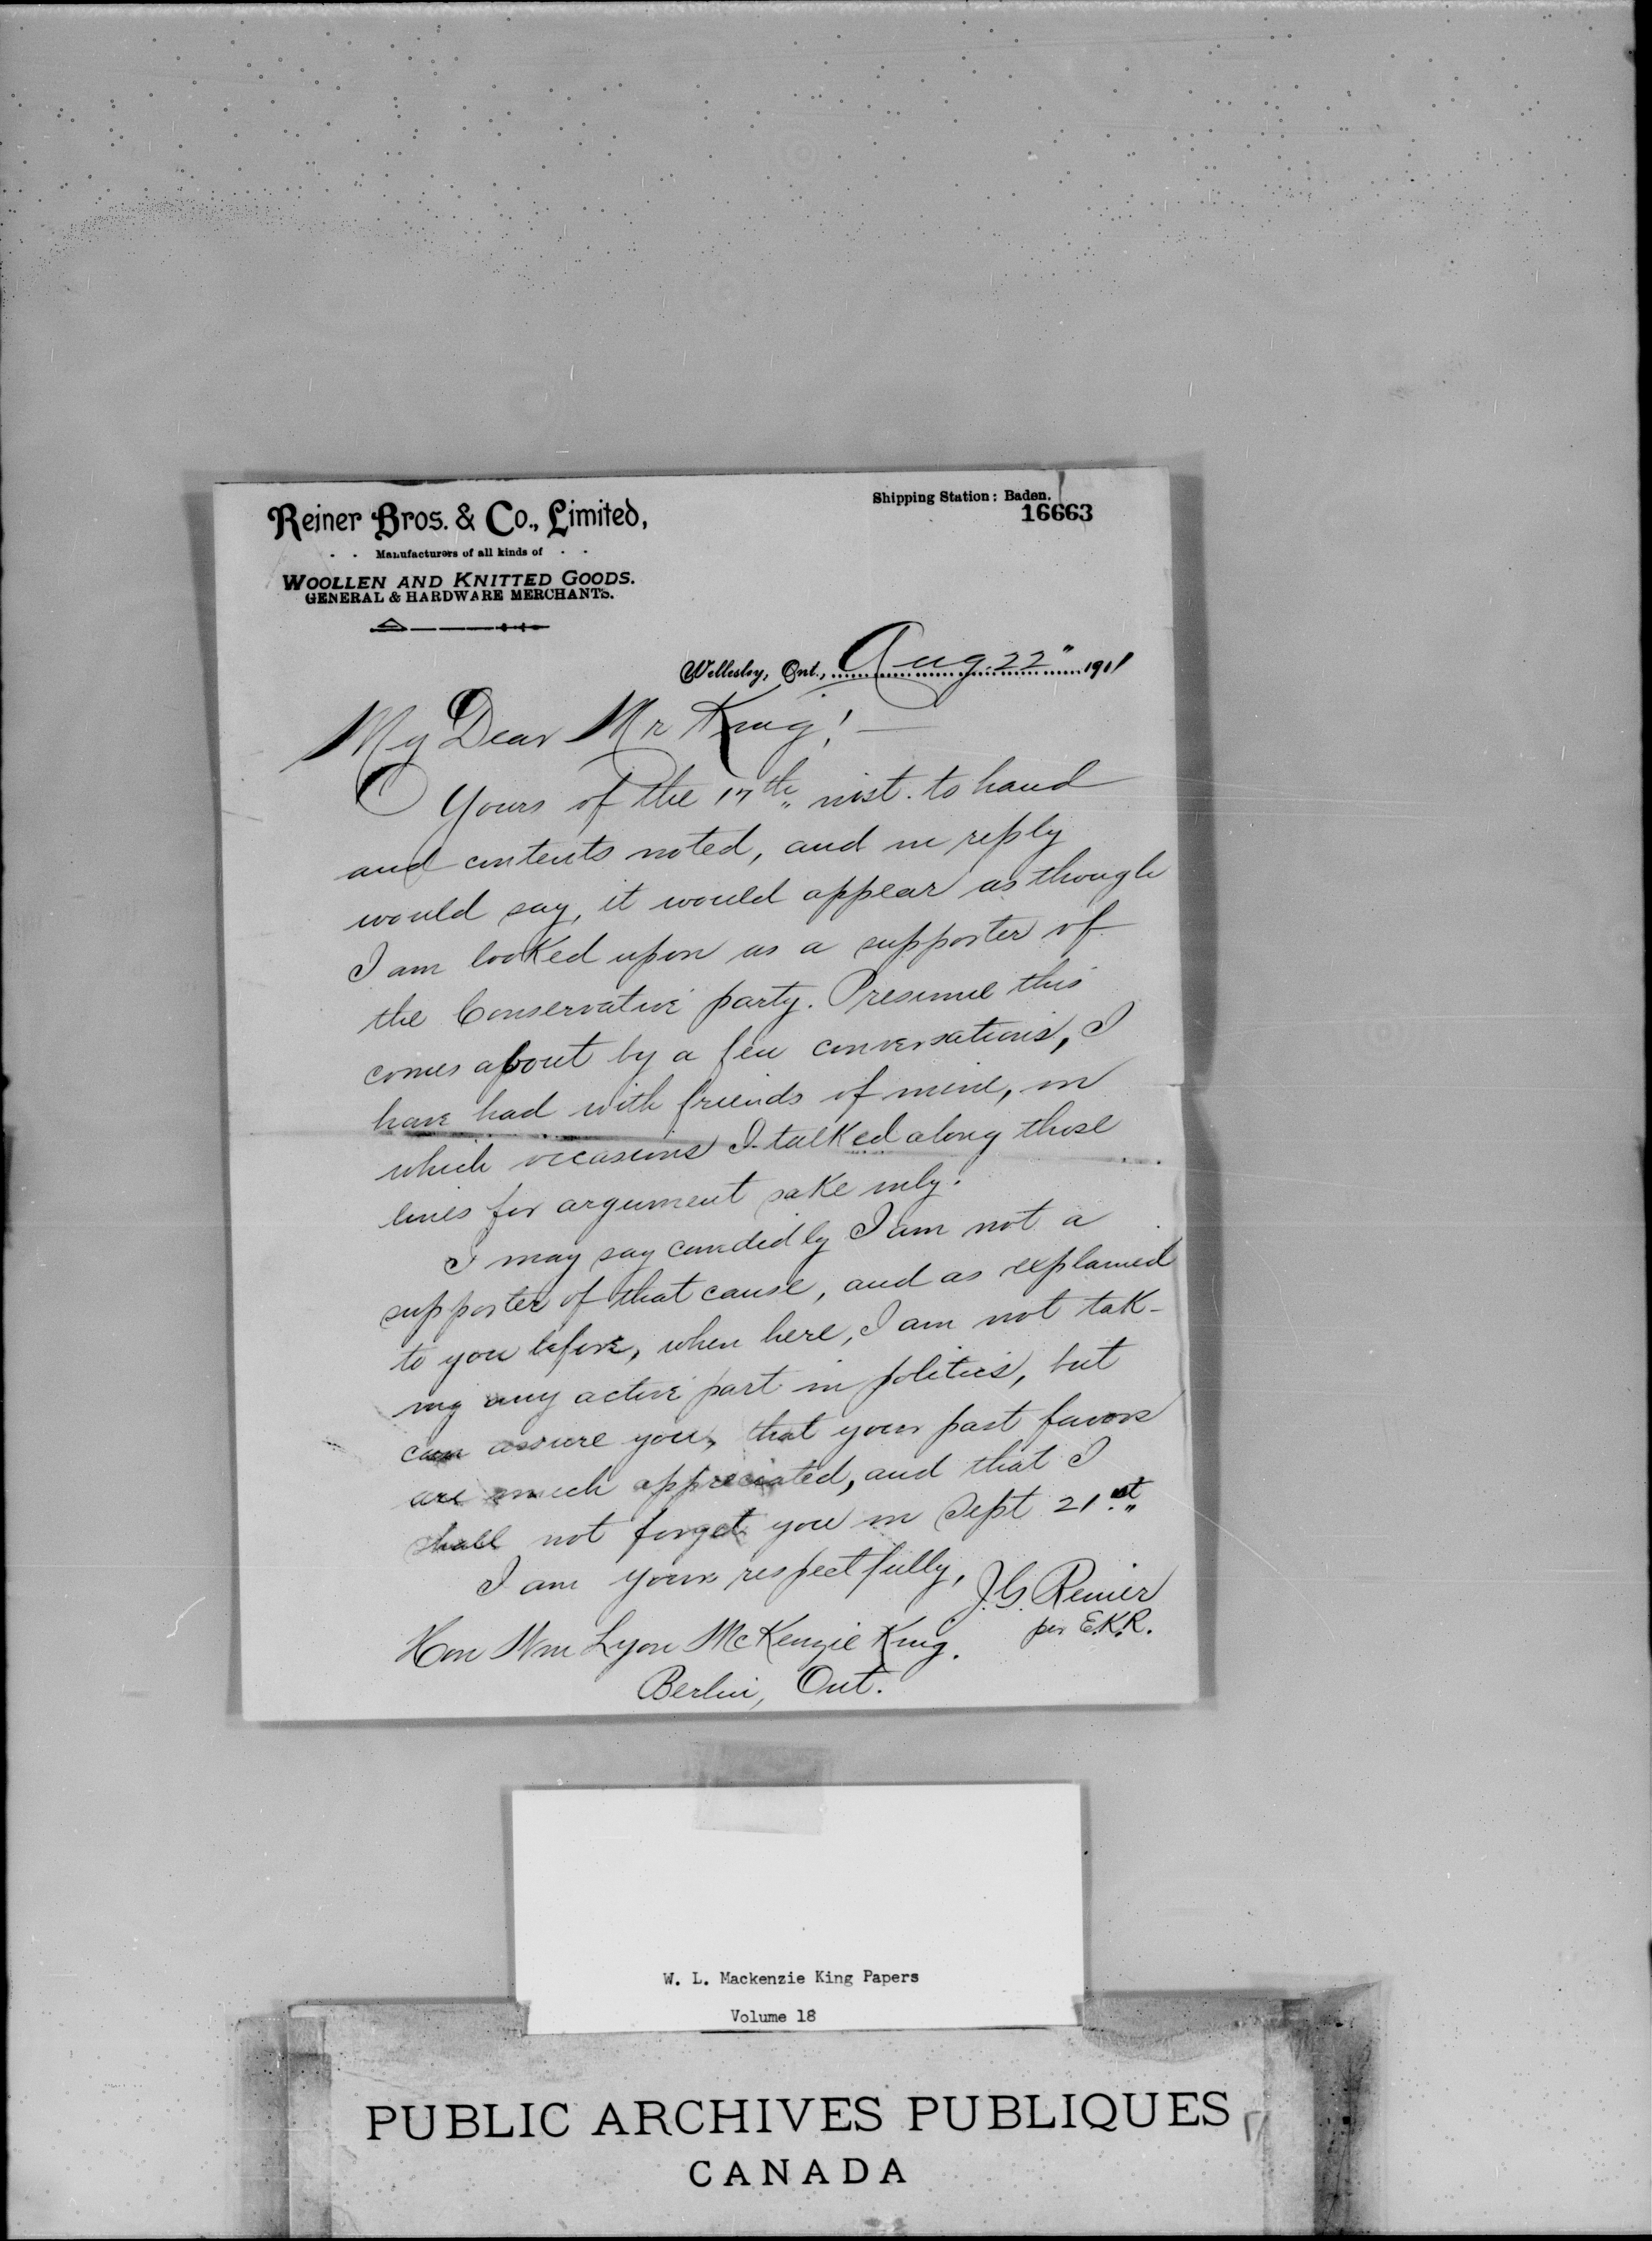 Reiner Bros. & Co., Limited,
Shipping Station: Baden.
16663
Manufacturers of all kinds of
WOOLLEN AND KNITTED GOODS.
GENERAL & HARDWARE MERCHANTS.
Wellesley, Ont., Aug. 22" 1911
My Dear Mr King! —
Yours of the 17th inst. to hand
and contents noted, and in reply
would say, it would appear as though
I am looked upon as a supporter of
the Conservative party. Presume this
comes about by a few conversations, I
have had with friends of mine, on
which occasions I talked along those
lines for argument sake only.
I may say candidly I am not a
supporter of that cause, and as explained
to you before, when here, I am not tak-
ing any active part in politics, but
can assure you, that your past favors
are much appreciated, and that I
shall not forget you on Sept 21st.
I am yours respectfully,
J.G. Reiner
per E.K.R.
Hon Wm Lyon McKenzie King.
Berlin, Ont.
W. L. Mackenzie King Papers
Volume 18
PUBLIC ARCHIVES PUBLIQUES
CANADA